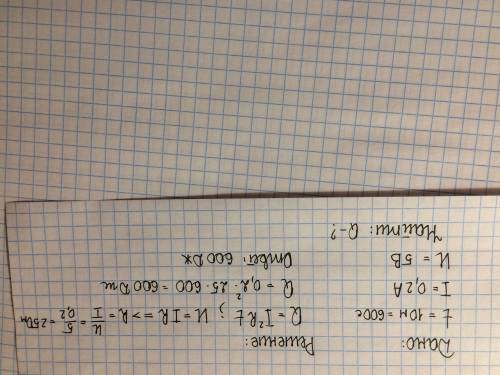 Дано:
t = 10м = 600с
I = 0,2А
U = 5В
Найти: Q-?
Решение:
Q = I²Rt ; U = IR => R = U/I = 5/0,2 = 25Ом
Q = 0,2² · 25 · 600 = 600Дж
Ответ: 600Дж